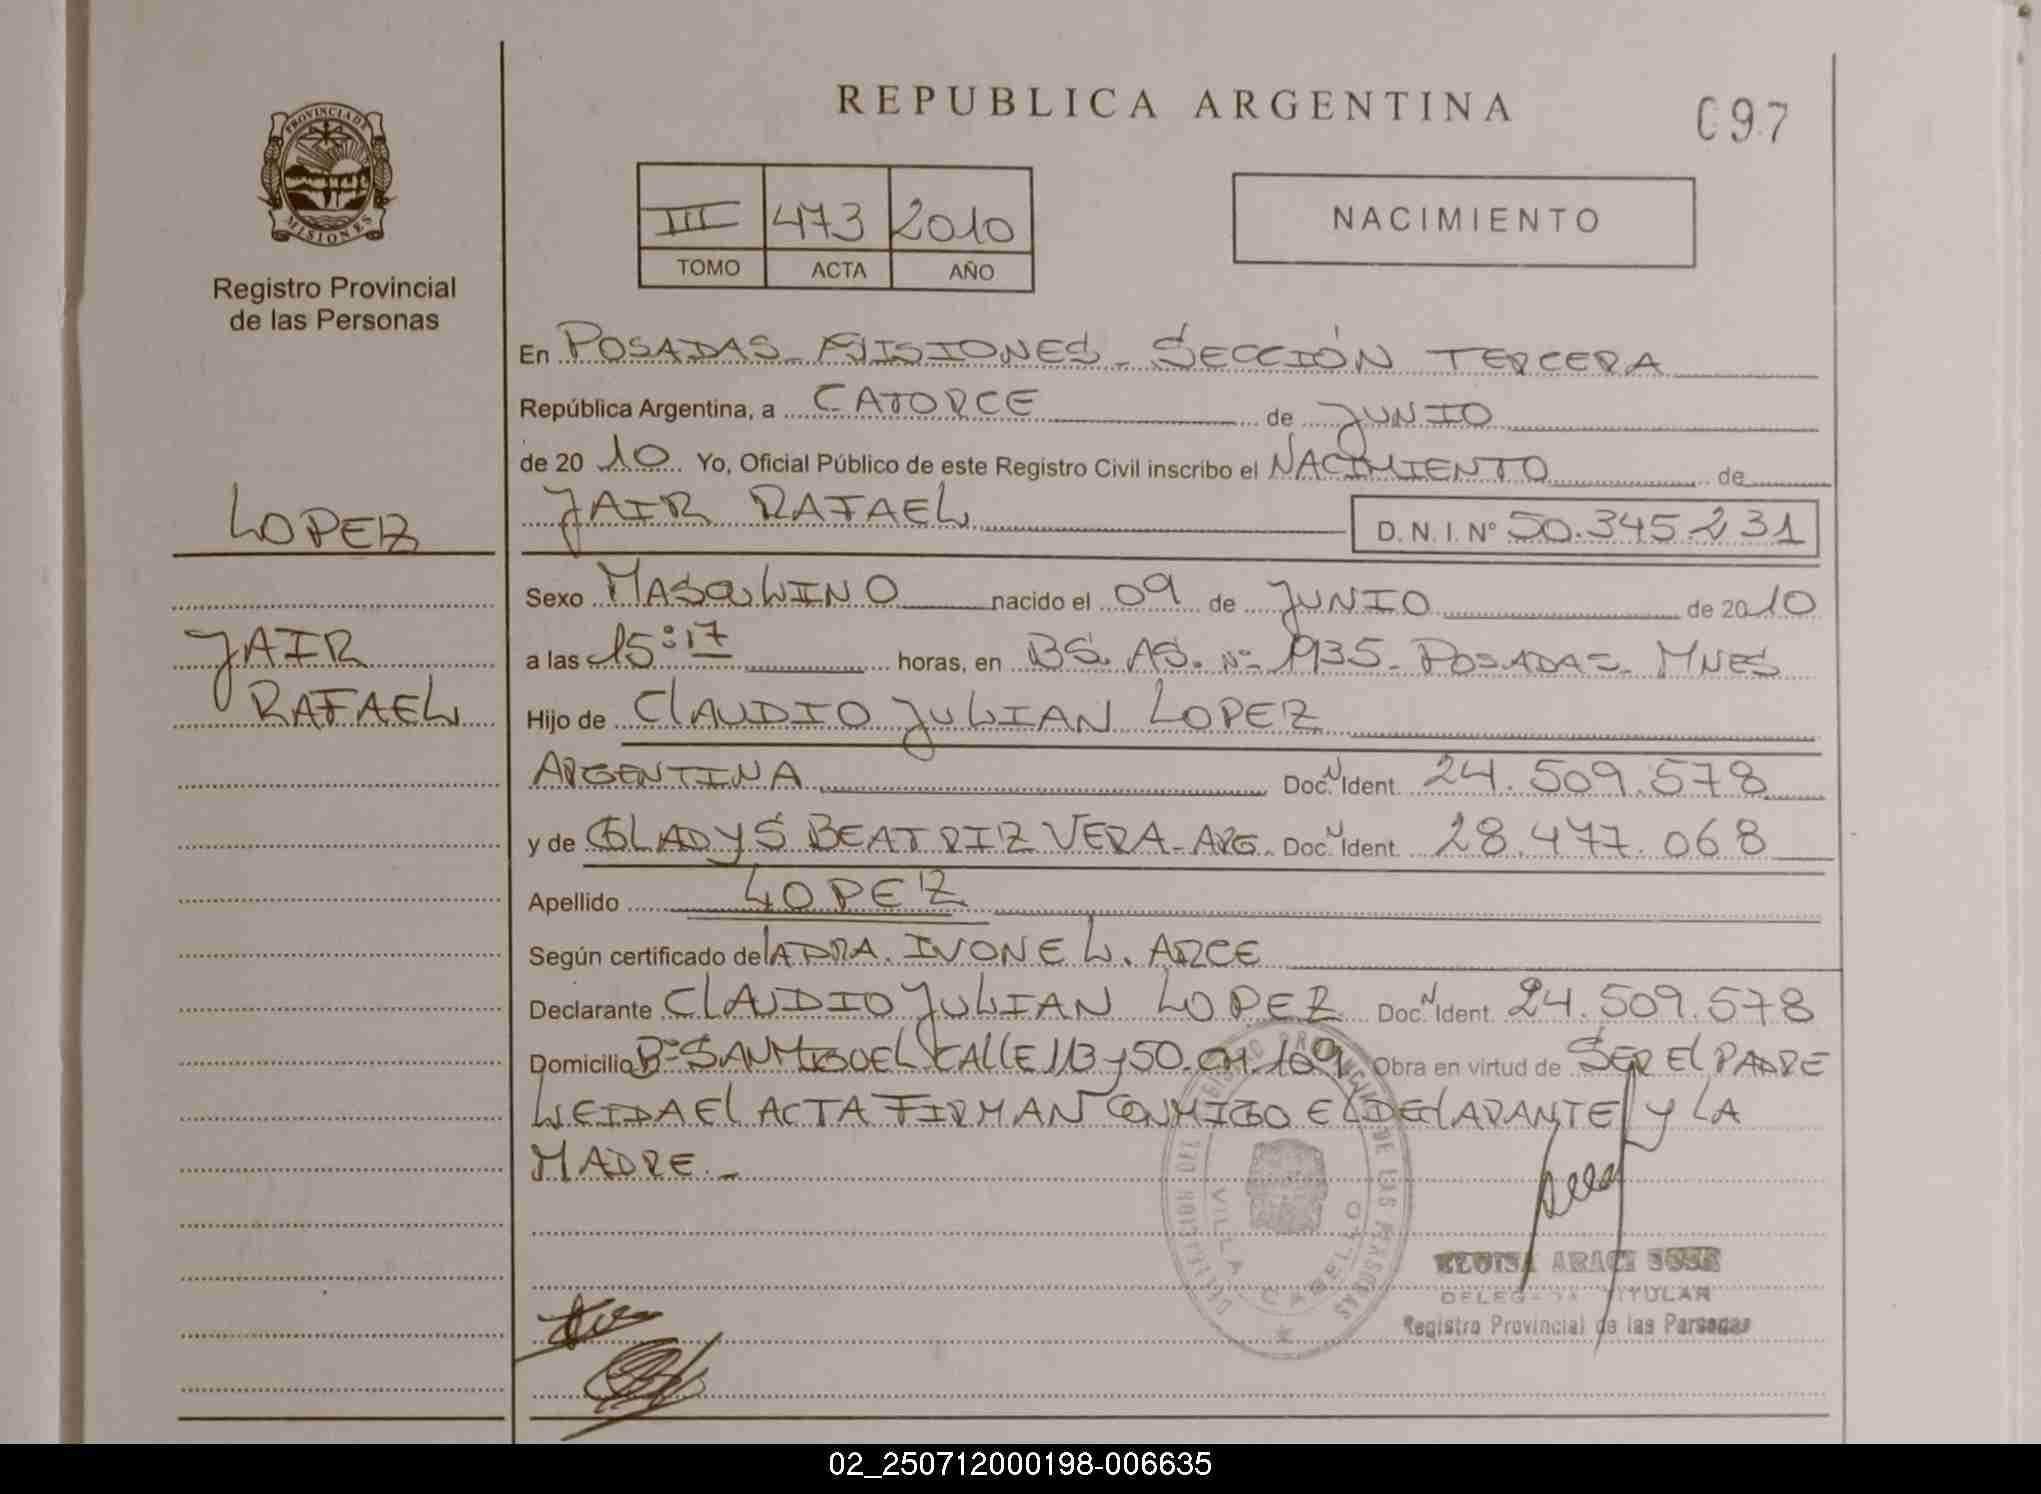 REPUBLICA ARGENTINA
097
PROVINCIA DE
MISIONES
Registro Provincial
de las Personas
III 473 2010
TOMO ACTA AÑO
NACIMIENTO
En POSADAS - MISIONES - SECCIÓN TERCERA
República Argentina, a CATORCE de JUNIO
de 20 10 Yo, Oficial Público de este Registro Civil inscribo el NACIMIENTO de
JAIR RAFAEL D. N. I. Nº 50.345.231
LOPEZ
Sexo MASCULINO nacido el 09 de JUNIO de 2010
JAIR
a las 15:17 horas, en BS. AS. Nº 1935 - POSADAS - MNES
RAFAEL
Hijo de CLAUDIO JULIAN LOPEZ
ARGENTINA Doc. N Ident. 24.509.578
y de GLADYS BEATRIZ VERA - ARG. Doc. N Ident. 28.477.068
Apellido LOPEZ
Según certificado de LA DRA. IVONE L. ARCE
Declarante CLAUDIO JULIAN LOPEZ Doc. N Ident. 24.509.578
Domicilio Bº SAN MIGUEL CALLE 113 y 50. CH. 169 Obra en virtud de SER EL PADRE
LEIDA EL ACTA FIRMAN CONMIGO EL DECLARANTE Y LA
MADRE. -
DELEGACION
DE LAS PERSONAS
VILLA CABELLO
ARACI
DELEGADA TITULAR
Registro Provincial de las Personas
02_250712000198-006635